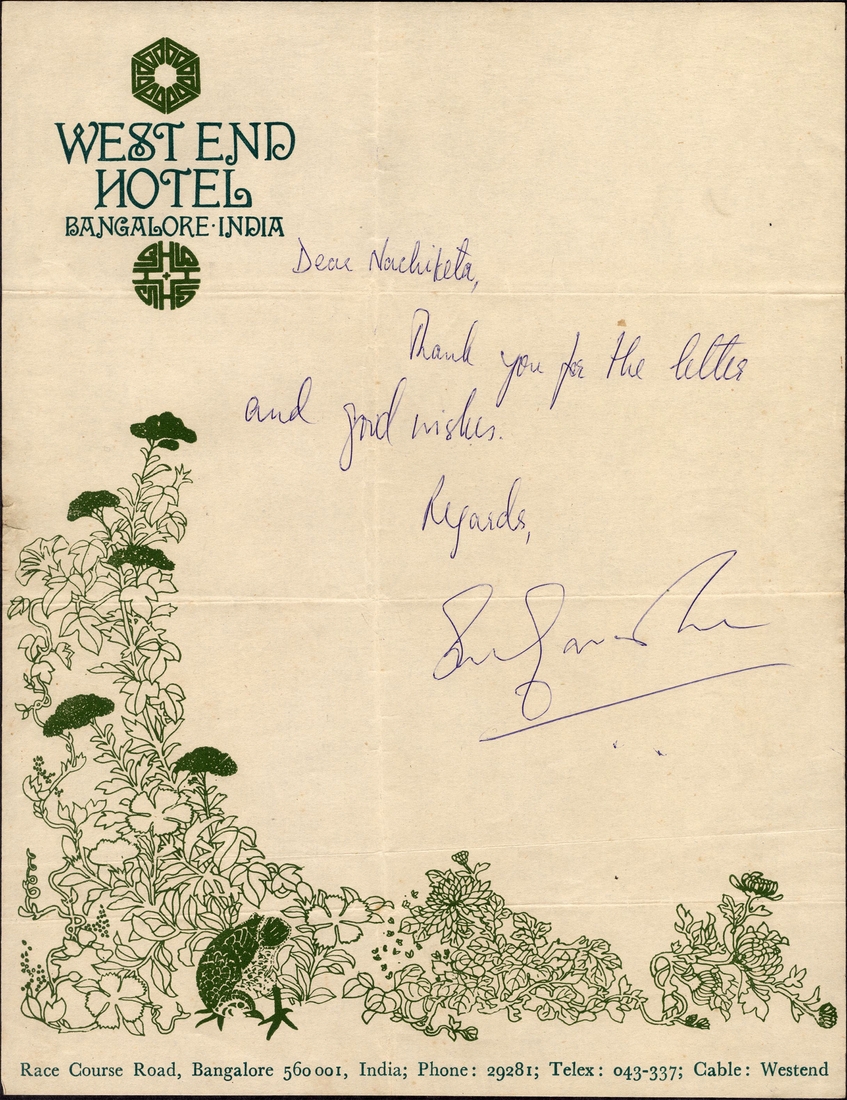 WEST END
HOTEL
BANGALORE·INDIA
Dear Nachiketa,
Thank you for the letter
and good wishes.
Regards,
Race Course Road, Bangalore 560 001, India; Phone: 29281; Telex: 043-337; Cable: Westend